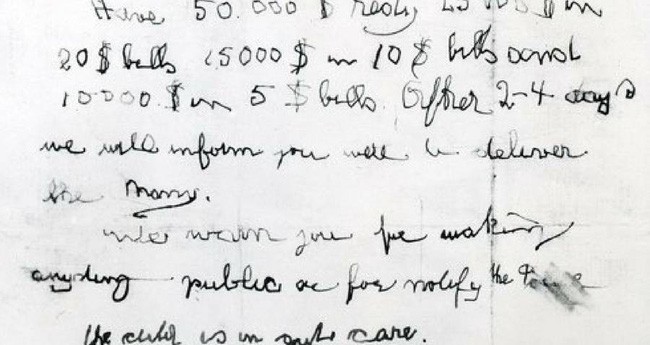 Have 50.000 $ redy 25 000 $ in
20 $ bills 15000 $ in 10 $ bills and
10000 $ in 5 $ bills After 2-4 days
we will inform you were to deliver
the Mony.
We warn you for making
anyding public or for notify the
the child is in gut care.